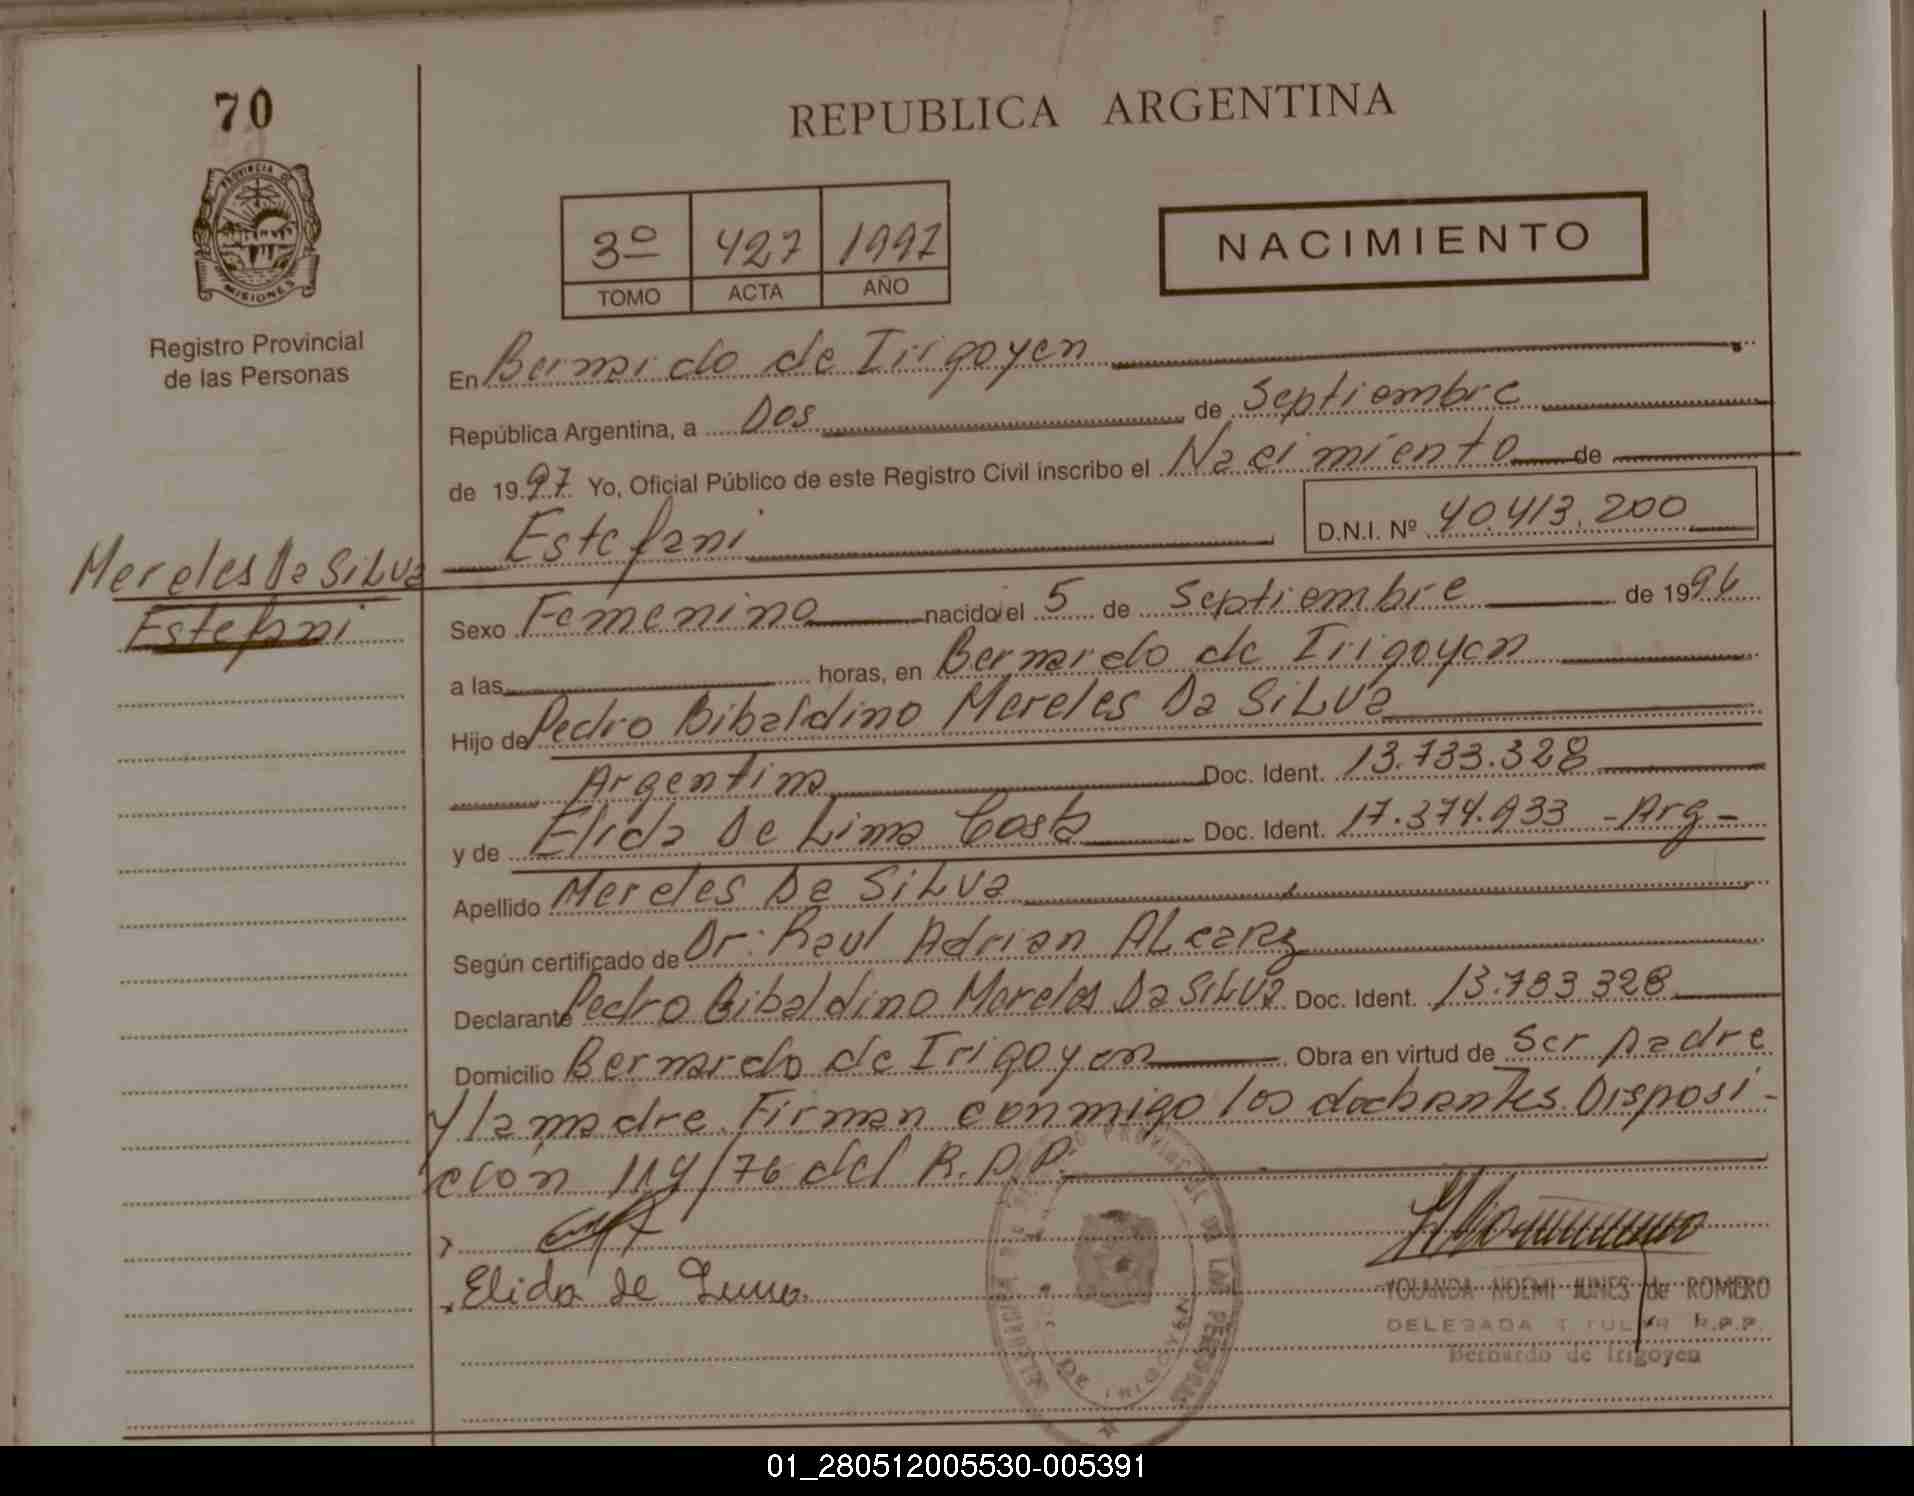 70
REPUBLICA ARGENTINA
PROVINCIA DE
MISIONES
Registro Provincial
de las Personas
3º 427 1997
TOMO ACTA AÑO
NACIMIENTO
En Bernardo de Irigoyen
República Argentina, a Dos de Septiembre
de 1997 Yo, Oficial Público de este Registro Civil inscribo el Nacimiento de
Estefani D.N.I. Nº 40.413.200
Mereles Da Silva
Estefani
Sexo Femenino nacido el 5 de Septiembre de 1996
a las horas, en Bernardo de Irigoyen
Hijo de Pedro Bibaldino Mereles Da Silva
Argentina Doc. Ident. 13.733.328
y de Elida De Lima Costa Doc. Ident. 17.374.933 - Arg -
Apellido Mereles Da Silva
Según certificado de Dr: Raul Adrian
Declarante Pedro Bibaldino Mereles Da Silva Doc. Ident. 13.733 328
Domicilio Bernardo de Irigoyen Obra en virtud de Ser padre
y la madre. Firman conmigo los Disposi -
ción 114/76 del R.P.P.
Elida de Lima.
YOLANDA NOEMI JUNES de ROMERO
DELEGADA TITULAR R.P.P.
Bernardo de Irigoyen
01_280512005530-005391